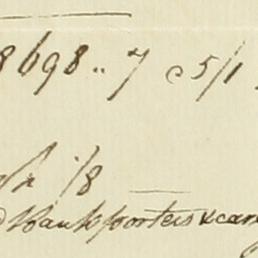 8698 .. 7 c 5/1
1/8
Bank porters & car